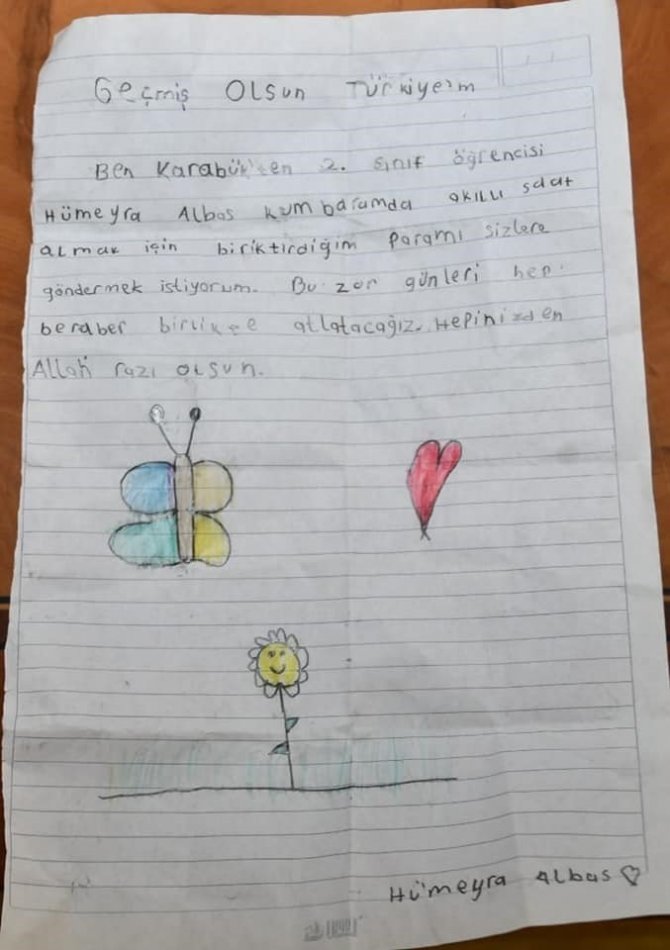 Geçmiş Olsun Türkiyem
Ben Karabük'ten 2. sınıf öğrencisi
Hümeyra Albas kumbaramda akıllı saat
almak için biriktirdiğim paramı sizlere
göndermek istiyorum. Bu zor günleri hep
beraber birlikte atlatacağız. Hepinizden
Allah razı olsun.
Hümeyra Albas